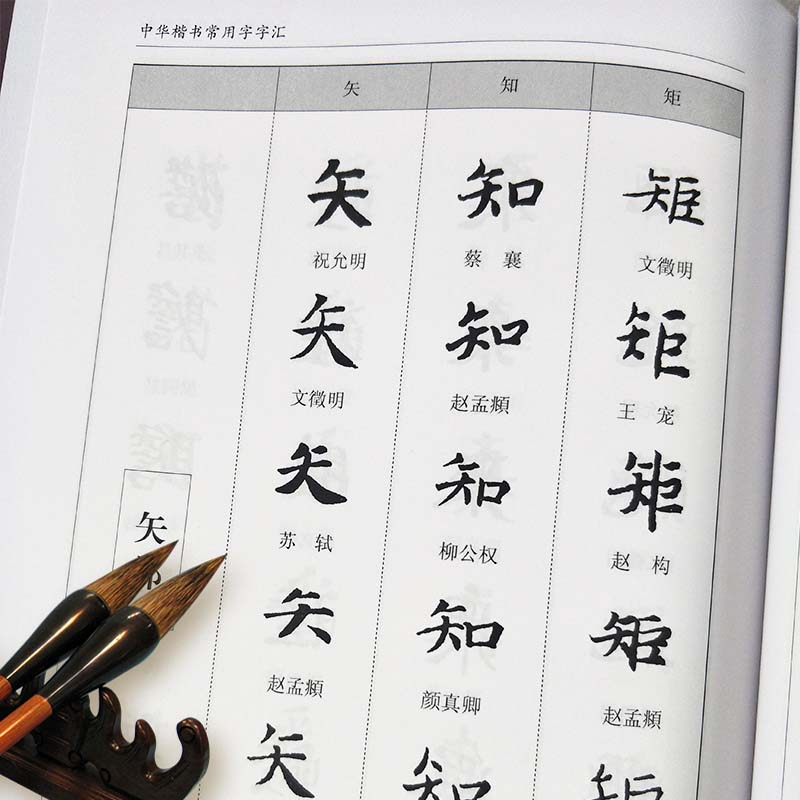 中华楷书常用字字汇
矢 知 矩
矢 知 矩
祝允明 蔡襄 文徵明
矢 知 矩
文徵明 赵孟頫 王宠
矢 知 矩
苏轼 柳公权 赵构
矢
矢 知 矩
赵孟頫 颜真卿 赵孟頫
矢 知 矩